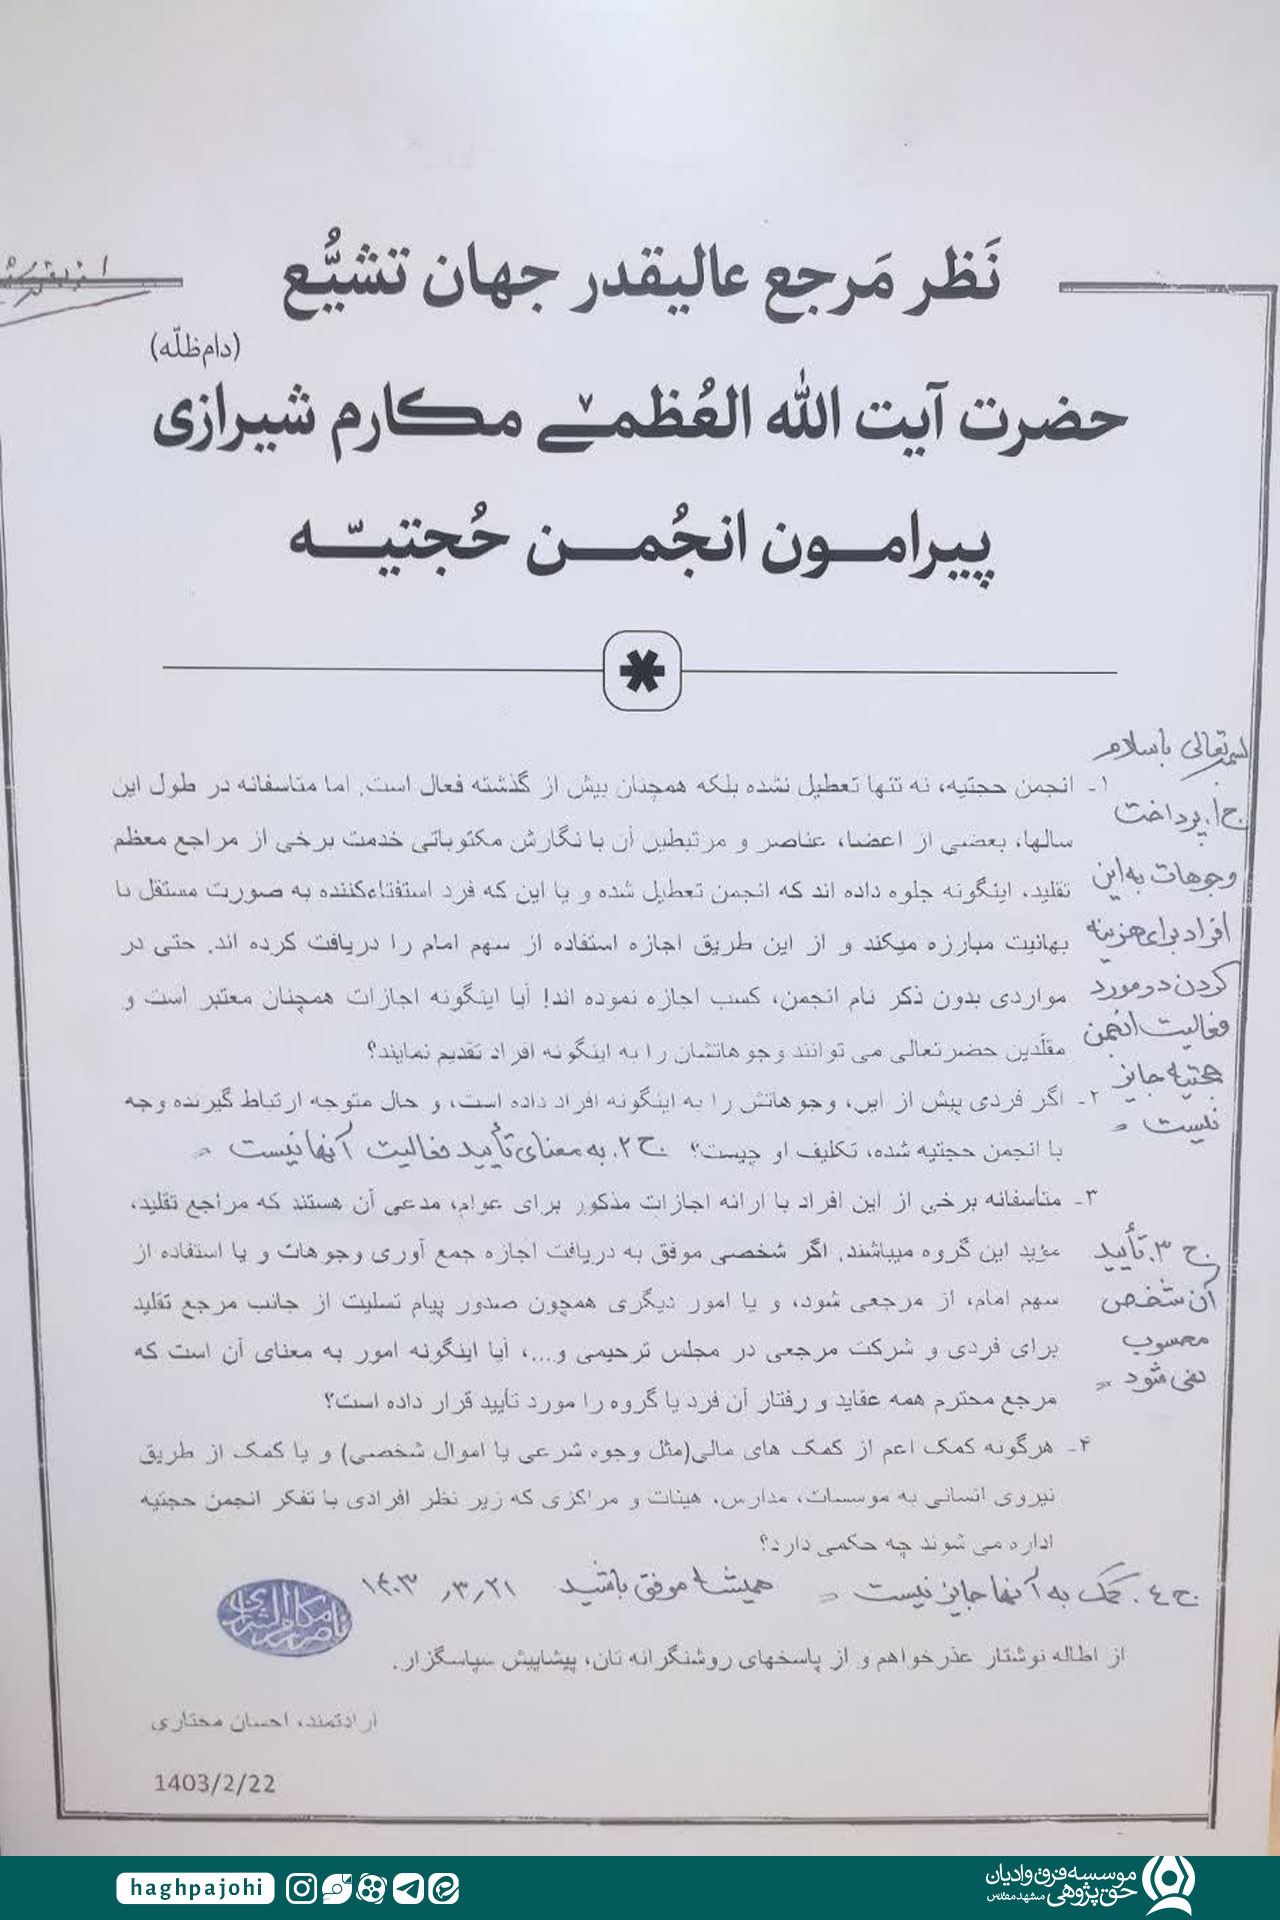 نَظر مَرجع عالیقدر جهان تشیُّع
(دام ظلّه)
حضرت آیت الله العُظمی مکارم شیرازی
پیرامون انجُمن حُجتیّه
*
بسمه تعالی با سلام
۱- انجمن حجتیه، نه تنها تعطیل نشده بلکه همچنان بیش از گذشته فعال است. اما متاسفانه در طول این
سالها، بعضی از اعضا، عناصر و مرتبطین آن با نگارش مکتوباتی خدمت برخی از مراجع معظم
تقلید، اینگونه جلوه داده اند که انجمن تعطیل شده و یا این که فرد استفتاءکننده به صورت مستقل با
بهائیت مبارزه میکند و از این طریق اجازه استفاده از سهم امام را دریافت کرده اند. حتی در
مواردی بدون ذکر نام انجمن، کسب اجازه نموده اند! آیا اینگونه اجازات همچنان معتبر است و
مقلّدین حضرتعالی می توانند وجوهاتشان را به اینگونه افراد تقدیم نمایند؟
ج۱. پرداخت
وجوهات به این
افراد برای هزینه
کردن در مورد
فعالیت انجمن
حجتیه جایز
نیست
۲- اگر فردی پیش از این، وجوهاتش را به اینگونه افراد داده است، و حال متوجه ارتباط گیرنده وجه
با انجمن حجتیه شده، تکلیف او چیست؟ ج۲. به معنای تأیید فعالیت آنها نیست
۳- متأسفانه برخی از این افراد با ارائه اجازات مذکور برای عوام، مدعی آن هستند که مراجع تقلید،
مؤید این گروه میباشند. اگر شخصی موفق به دریافت اجازه جمع آوری وجوهات و یا استفاده از
سهم امام، از مرجعی شود، و یا امور دیگری همچون صدور پیام تسلیت از جانب مرجع تقلید
برای فردی و شرکت مرجعی در مجلس ترحیمی و...، آیا اینگونه امور به معنای آن است که
مرجع محترم همه عقاید و رفتار آن فرد یا گروه را مورد تأیید قرار داده است؟
ج ۳. تأیید
آن شخص
محسوب
نمی شود
۴- هرگونه کمک اعم از کمک های مالی(مثل وجوه شرعی یا اموال شخصی) و یا کمک از طریق
نیروی انسانی به موسسات، مدارس، هیئات و مراکزی که زیر نظر افرادی با تفکر انجمن حجتیه
اداره می شوند چه حکمی دارد؟
ج ٤. کمک به آنها جایز نیست همیشه موفق باشید ۱۴۰۳/۳/۲۱
ناصر مکارم الشیرازی
از اطاله نوشتار عذرخواهم و از پاسخهای روشنگرانه تان، پیشاپیش سپاسگزار.
ارادتمند، احسان مختاری
1403/2/22
موسسه فرق و ادیان
حق پژوهی مشهد مقدس
haghpajohi